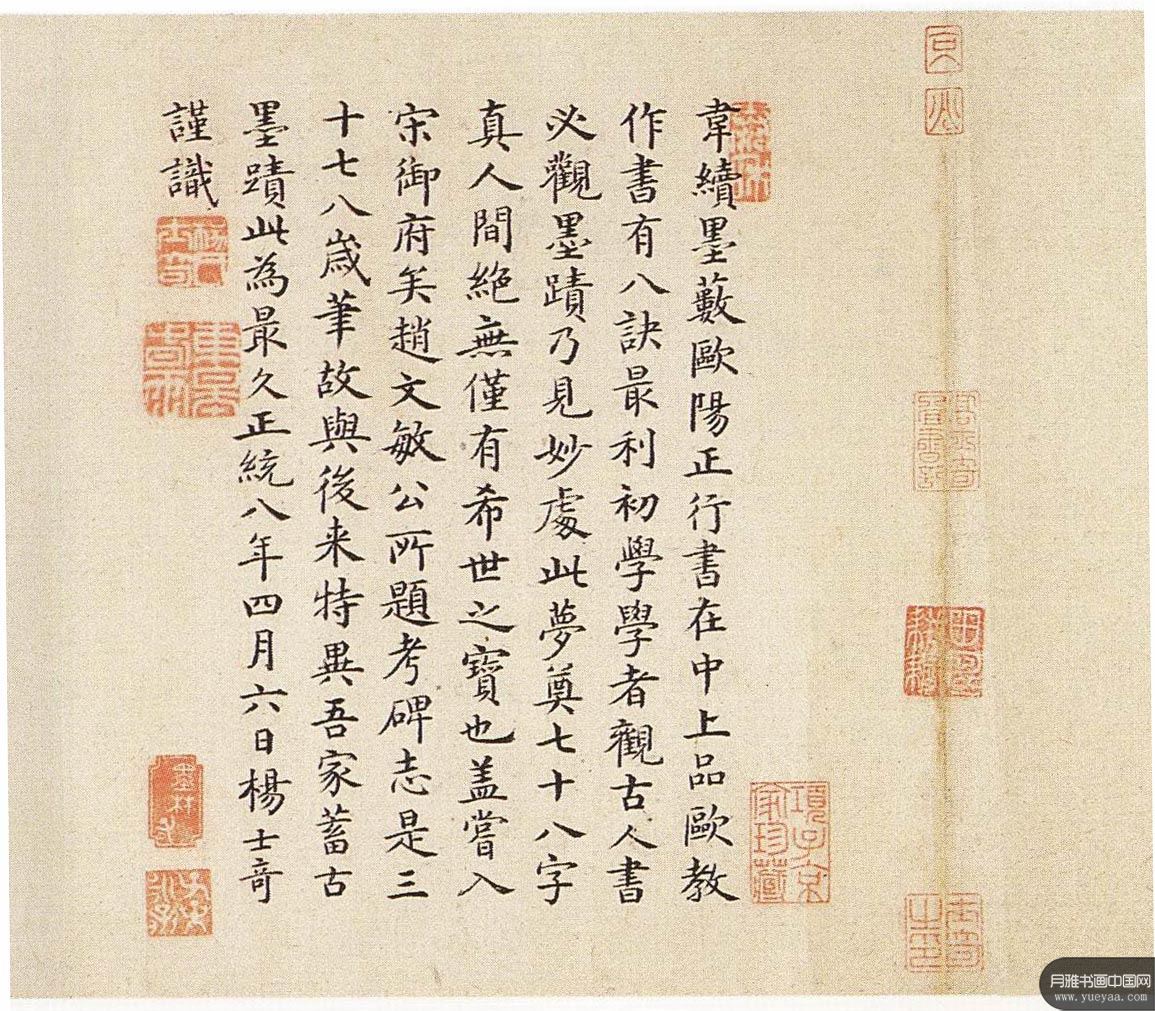 韋續墨藪歐陽正行書在中上品歐教
作書有八訣最利初學學者觀古人書
必觀墨蹟乃見妙處此夢奠七十八字
真人間絕無僅有希世之寶也盖嘗入
宋御府矣趙文敏公所題考碑志是三
十七八歲筆故與後来特異吾家蓄古
墨蹟此為最久正統八年四月六日楊士竒
謹識
項子京
家珍藏
月雅书画中国网
www.yueyaa.com